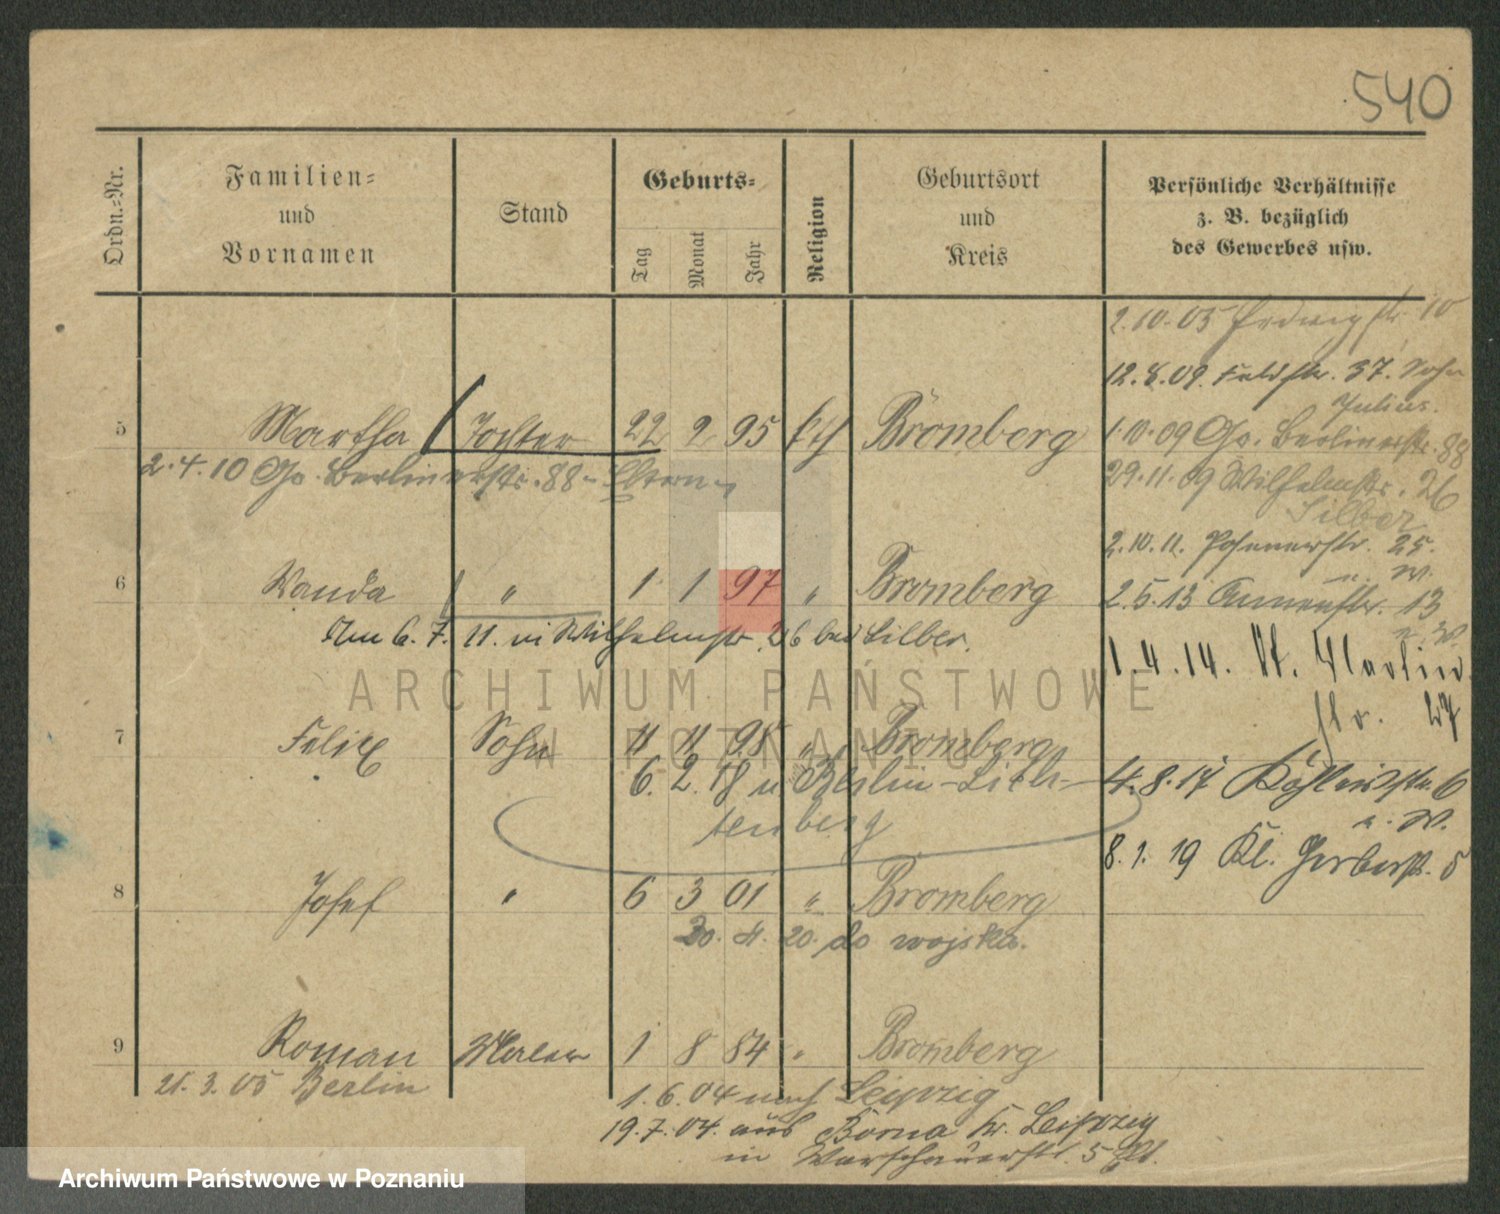 540
Ordn.-Nr.
Familien-
und
Vornamen
Stand
Geburts-
Tag
Monat
Jahr
Religion
Geburtsort
und
Kreis
Persönliche Verhältnisse
z. B. bezüglich
des Gewerbes usw.
2.10.05 Hedwigstr. 10
12.8.09. Feldstr. 37. Sohn
Julius.
5 Martha Tochter 22 2 95 kth Bromberg
1.10.09 Gr. Berlinerstr. 88
2.4.10 Gr. Berlinerstr. 88 - Eltern -
29.11.09 Wilhelmstr. 26
Silber
2.10.11. Posenerstr. 25.
u. W.
6 Wanda " 1 1 97 " Bromberg
2.5.13 Annenstr. 13
u. W.
Am 6.7.11. in Wilhelmstr. 26 bei Silber.
1.4.14. St. Martin
str. 27
7 Felix Sohn 11 11 98 " Bromberg
6.2.18 n. Berlin-Lich-
tenberg
4.8.17 6
u. W.
8.1.19 Kl. Gerberstr. 5
8 Josef " 6 3 01 " Bromberg
20. do wojska.
9 Roman Maler 1 8 84 " Bromberg
21.3.05 Berlin
1.6.04 nach Leipzig
19.7.04. aus Borna Kr. Leipzig
in Warschauerstr 5 Elt.
ARCHIWUM PAŃSTWOWE
W POZNANIU
Archiwum Państwowe w Poznaniu